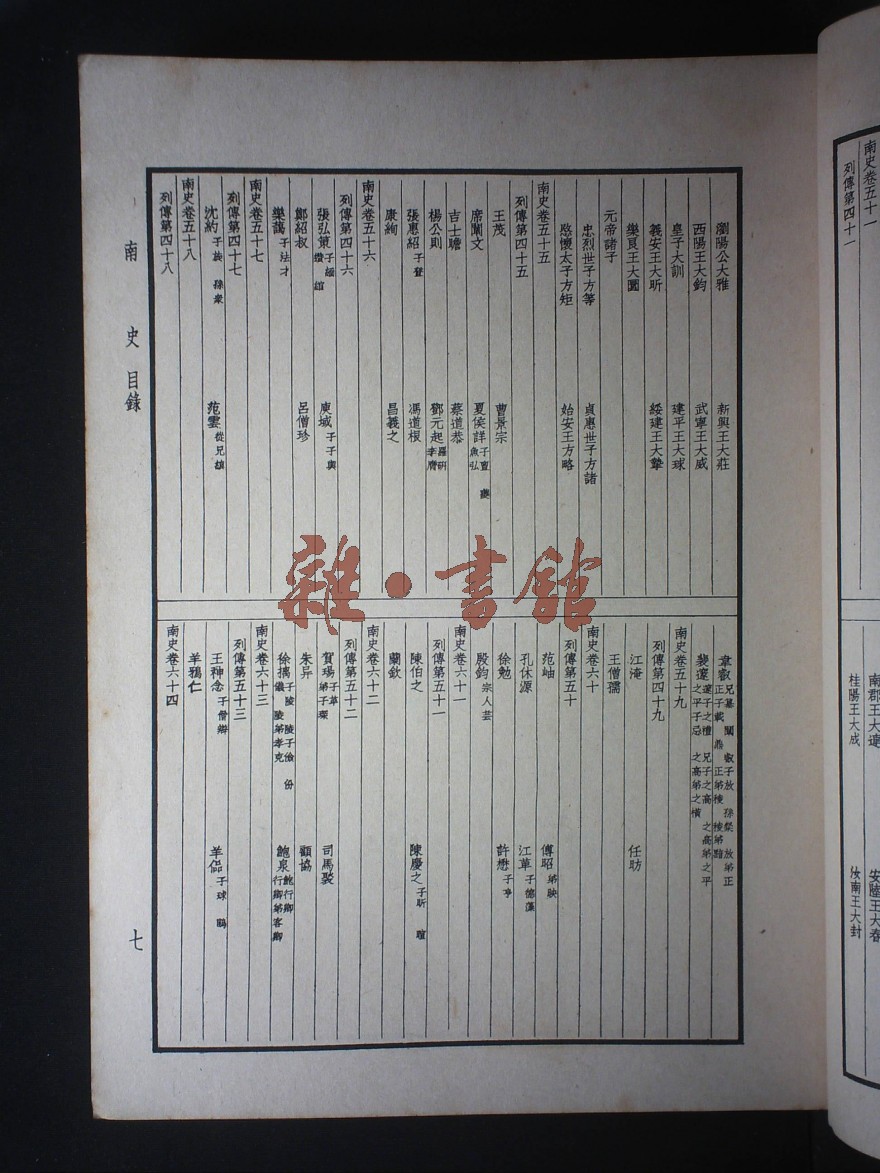 瀏陽公大雅　新興王大莊
西陽王大鈞　武寧王大威
皇子大訓　建平王大球
義安王大昕　綏建王大摯
樂良王大圜
元帝諸子
忠烈世子方等　貞惠世子方諸
愍懷太子方矩　始安王方略
南史卷五十五
列傳第四十五
王茂　曹景宗
席闡文　夏侯詳子亶　夔　魚弘
吉士瞻　蔡道恭
楊公則　鄧元起羅研　李膺
張惠紹子登　馮道根
康絢　昌義之
南史卷五十六
列傳第四十六
張弘策子緬　纘　綰　庾域子子輿
鄭紹叔　呂僧珍
樂藹子法才
南史卷五十七
列傳第四十七
沈約子旋　孫衆　范雲從兄縝
南史卷五十八
列傳第四十八
韋叡兄纂　闡　叡子放　孫粲　放弟正　正子載　鼎　正弟稜　稜弟黯
裴邃邃子之禮　兄子之高　之高弟之平　之平子忌　之高弟之橫
南史卷五十九
列傳第四十九
江淹　任昉
王僧孺
南史卷六十
列傳第五十
范岫　傅昭弟映
孔休源　江革子德藻
徐勉　許懋子亨
殷鈞宗人芸
南史卷六十一
列傳第五十一
陳伯之　陳慶之子昕　暄
蘭欽
南史卷六十二
列傳第五十二
賀瑒子革　弟子琛　司馬褧
朱异　顧協
徐摛子陵　陵子儉　份　儀　陵弟孝克　鮑泉鮑行卿　行卿弟客卿
南史卷六十三
列傳第五十三
王神念子僧辯　羊侃子球　鵾
羊鴉仁
南史卷六十四
南史目錄
七
南史卷五十一
列傳第四十一
南郡王大連　安陸王大春
桂陽王大成　汝南王大封
雜·書館